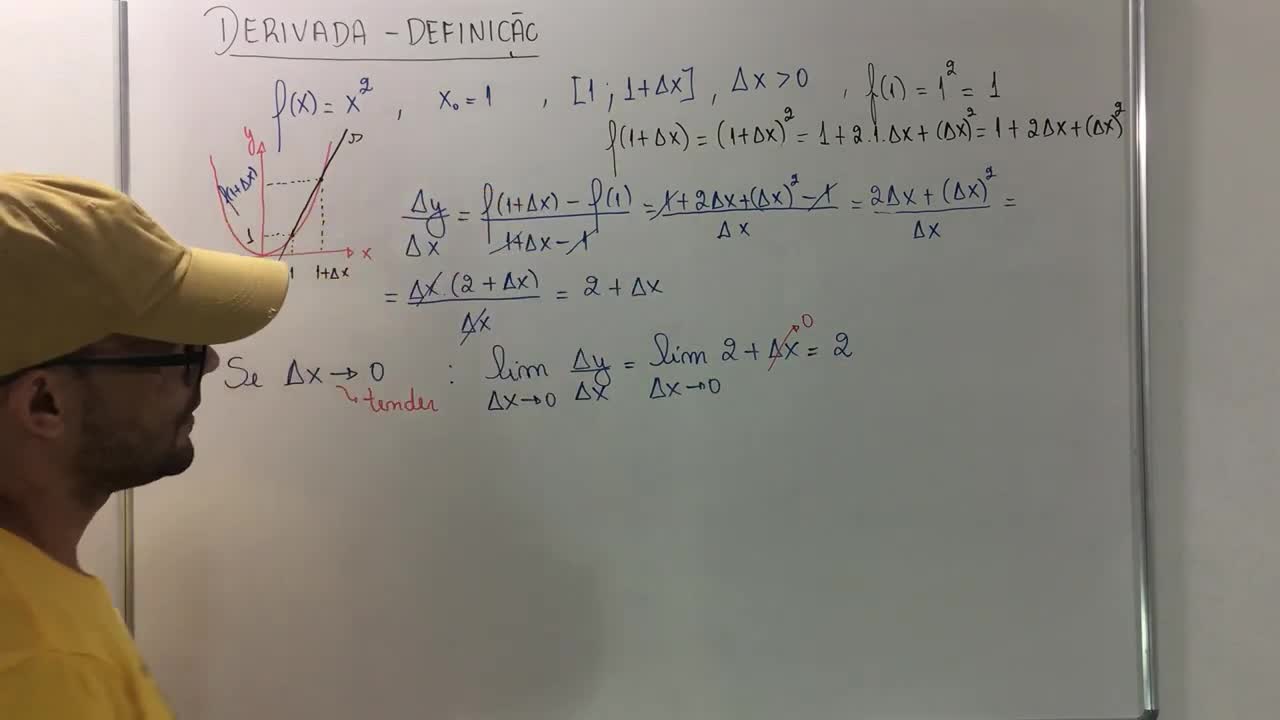 DERIVADA - DEFINIÇÃO
f(x) = x² , x₀ = 1 , [1 ; 1+Δx] , Δx > 0 , f(1) = 1² = 1
f(1+Δx) = (1+Δx)² = 1 + 2.1.Δx + (Δx)² = 1 + 2Δx + (Δx)²
y
s
f(1+Δx)
1
x
1
1+Δx
Δy/Δx = (f(1+Δx) - f(1))/(1+Δx-1) = (1 + 2Δx + (Δx)² - 1)/Δx = (2Δx + (Δx)²)/Δx =
= (Δx.(2 + Δx))/Δx = 2 + Δx
Se Δx → 0 : lim Δx→0 Δy/Δx = lim Δx→0 2 + Δx = 2
0
tender